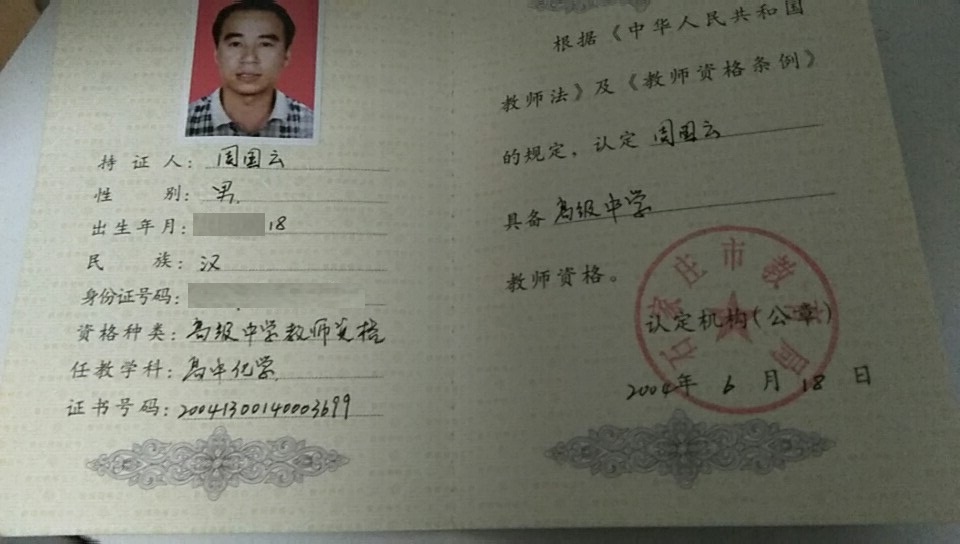 持证人：周国云
性别：男
出生年月：18
民族：汉
身份证号码：
资格种类：高级中学教师资格
任教学科：高中化学
证书号码：20041300140003699
根据《中华人民共和国
教师法》及《教师资格条例》
的规定，认定周国云
具备高级中学
教师资格。
石家庄市教育局
认定机构（公章）
2004年6月18日